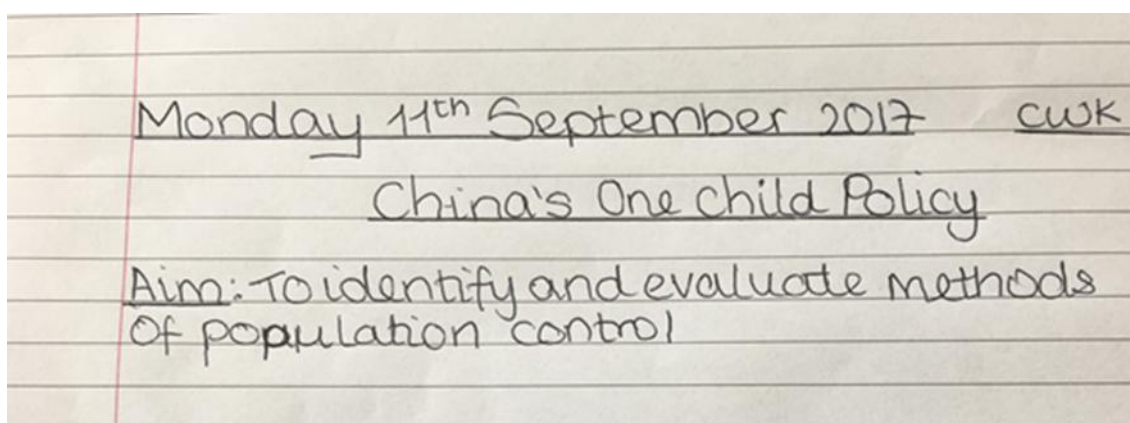 Monday 11th September 2017 CWK
China's One Child Policy
Aim: To identify and evaluate methods
of population control